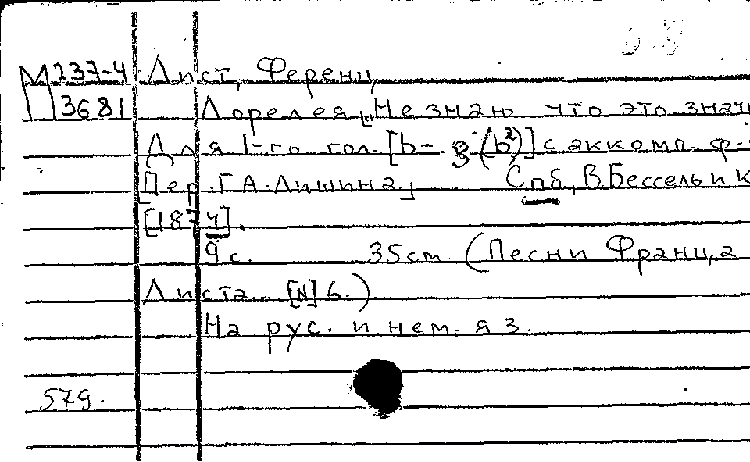 М 237-4 Лист, Ференц
3681 Лорелея „Не знаю что это знач
Для 1-го гол. [b- g²(b²)] с аккомп. ф.-
Пер. Г.А. Лишина„ Спб, В. Бессель и К
[1874].
9 с. 35 cm (Песни Франца
Листа. [N] 6.)
На рус. и нем. яз.
579.